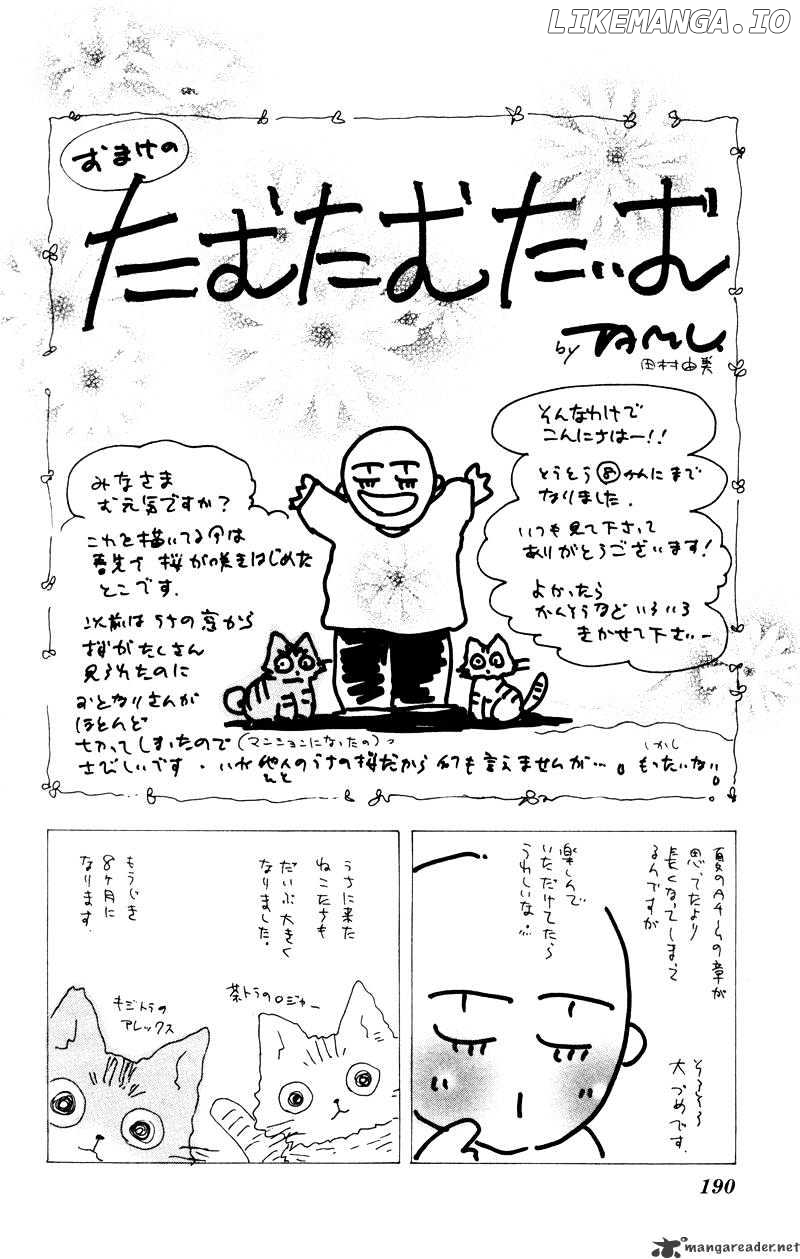 LIKEMANGA.IO
おまけの
たむたむたいむ
by TAMU.
田村由美
そんなわけで
こんにちはー!!
とうとう⑧かんにまで
なりました.
いつも見て下さって
ありがとうございます!
よかったら
かんそうなどいろいろ
きかせて下さいー
みなさま
お元気ですか?
これを描いてる今は
春先で 桜が咲きはじめた
とこです.
以前はうちの窓から
桜がたくさん
見られたのに
おとなりさんが
ほとんど
切ってしまったので(マンションになったの)っ
さびしいです.いや他人のうちの桜だから何も言えませんが….しかしもったいない。
夏のAチームの章が
思ってたより
長くなってしまって
るんですが
そろそろ
大づめです.
楽しんで
いただけてたら
うれしいな…
うちに来た
ねこたちも
だいぶ大きく
なりました.
もうじき
8ヶ月に
なります.
茶トラのロジャー
キジトラの
アレックス
190
mangareader.net